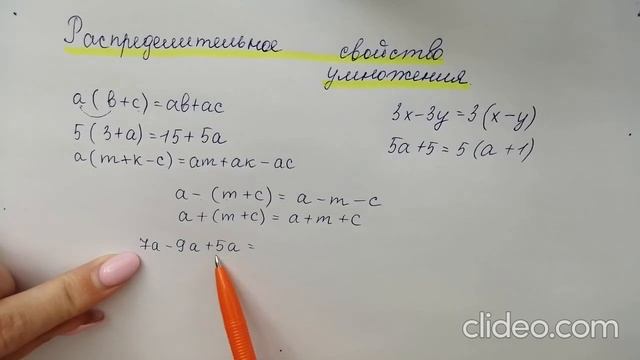 Распределительное свойство
умножения
a(в+c)=aв+ac
5(3+a)=15+5a
a(m+к-c)=am+aк-ac
3x-3y=3(x-y)
5a+5=5(a+1)
a-(m+c)=a-m-c
a+(m+c)=a+m+c
7a-9a+5a=
clideo.com